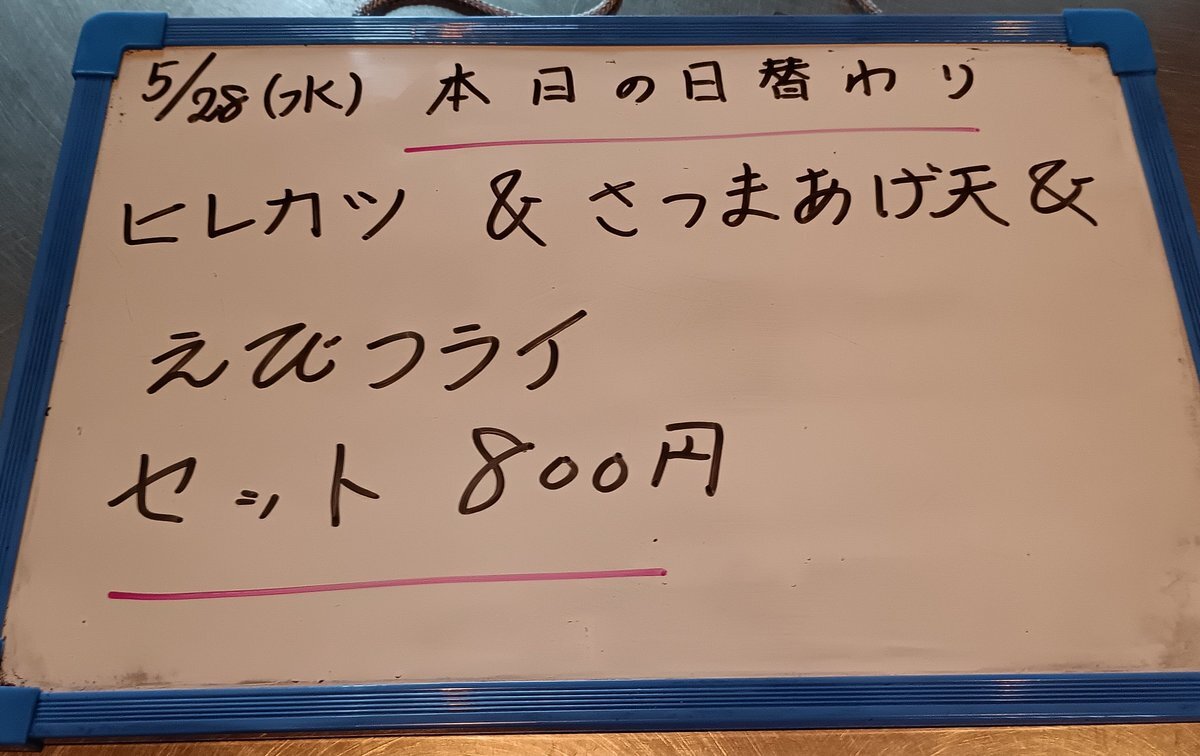 5/28(水) 本日の日替わり
ヒレカツ & さつまあげ天 &
えびフライ
セット 800円